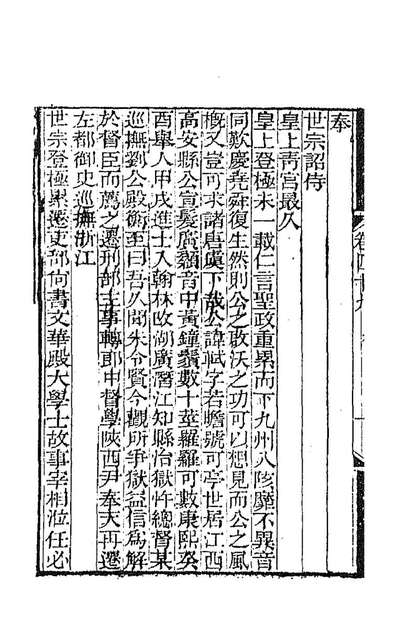 奉
世宗詔侍
皇上青宮最久
皇上登極未一載仁言聖政重累而下九州八陔靡不異音
同歎慶堯舜復生然則公之啟沃之功可以想見而公之風
槪又豈可求諸唐虞下哉公諱軾字若瞻號可亭世居江西
高安縣公宣髮廣顙音中黃鐘鬚數十莖羅羅可數康熙癸
酉舉人甲戌進士入翰林改湖廣潛江知縣治獄忤總督某
巡撫劉公殿衡至曰吾久聞朱令賢今觀所爭獄益信爲解
於督臣而薦之遷刑部主事轉郎中督學陝西尹奉天再遷
左都御史巡撫浙江
世宗登極累遷吏部尙書文華殿大學士故事宰相涖任必